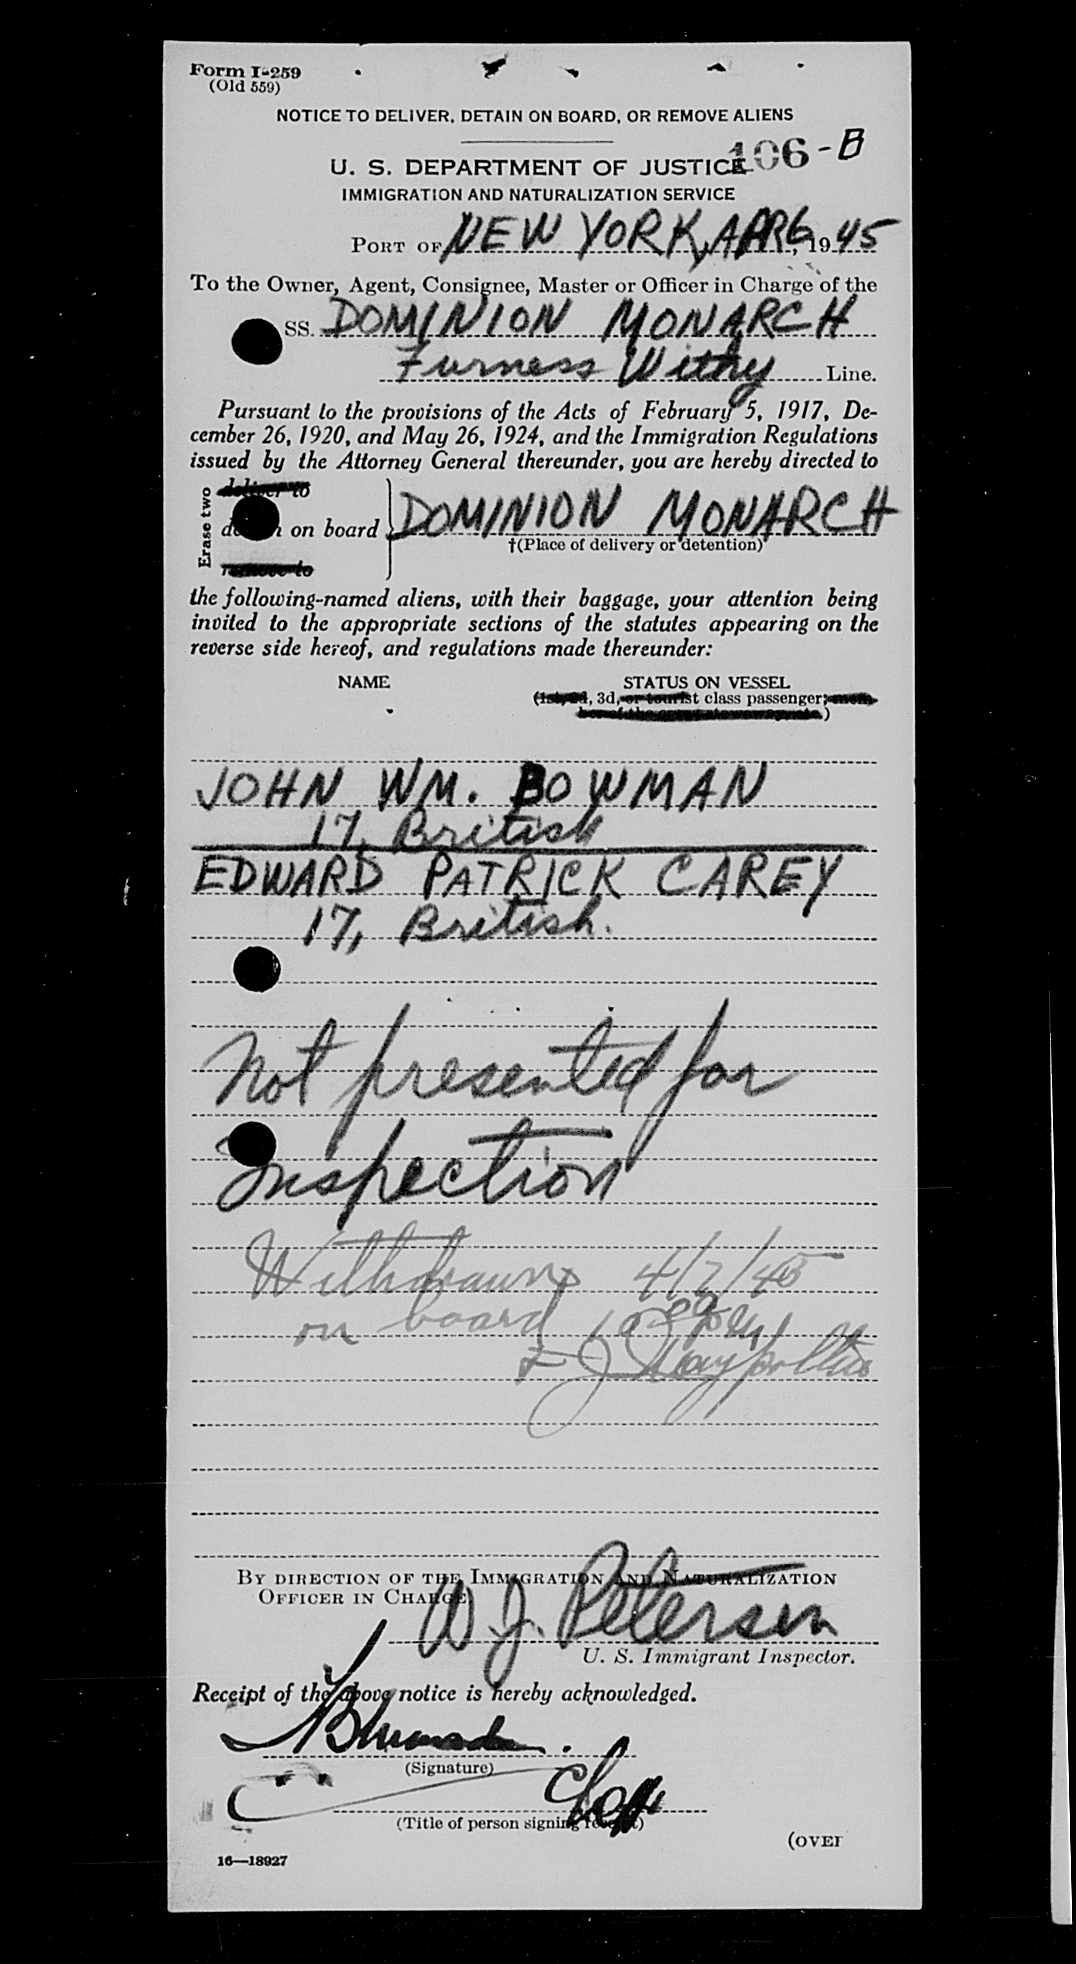 Form I-259
(Old 559)
NOTICE TO DELIVER, DETAIN ON BOARD, OR REMOVE ALIENS
106-B
U. S. DEPARTMENT OF JUSTICE
IMMIGRATION AND NATURALIZATION SERVICE
PORT OF NEW YORK, APR 6, 1945
To the Owner, Agent, Consignee, Master or Officer in Charge of the
SS. DOMINION MONARCH
Furness Withy Line.
Pursuant to the provisions of the Acts of February 5, 1917, De-
cember 26, 1920, and May 26, 1924, and the Immigration Regulations
issued by the Attorney General thereunder, you are hereby directed to
Erase two
deliver to
detain on board DOMINION MONARCH
remove to
†(Place of delivery or detention)
the following-named aliens, with their baggage, your attention being
invited to the appropriate sections of the statutes appearing on the
reverse side hereof, and regulations made thereunder:
NAME STATUS ON VESSEL
(1st, 2d, 3d, or tourist class passenger; mem-
ber of the crew, stowaway, etc.)
JOHN WM. BOWMAN
17, British
EDWARD PATRICK CAREY
17, British.
Not presented for
Inspection
Withdrawn 4/7/45
on board
BY DIRECTION OF THE IMMIGRATION AND NATURALIZATION
OFFICER IN CHARGE.
W. J. Petersen
U. S. Immigrant Inspector.
Receipt of the above notice is hereby acknowledged.
(Signature)
(Title of person signing receipt)
(OVER
16—18927